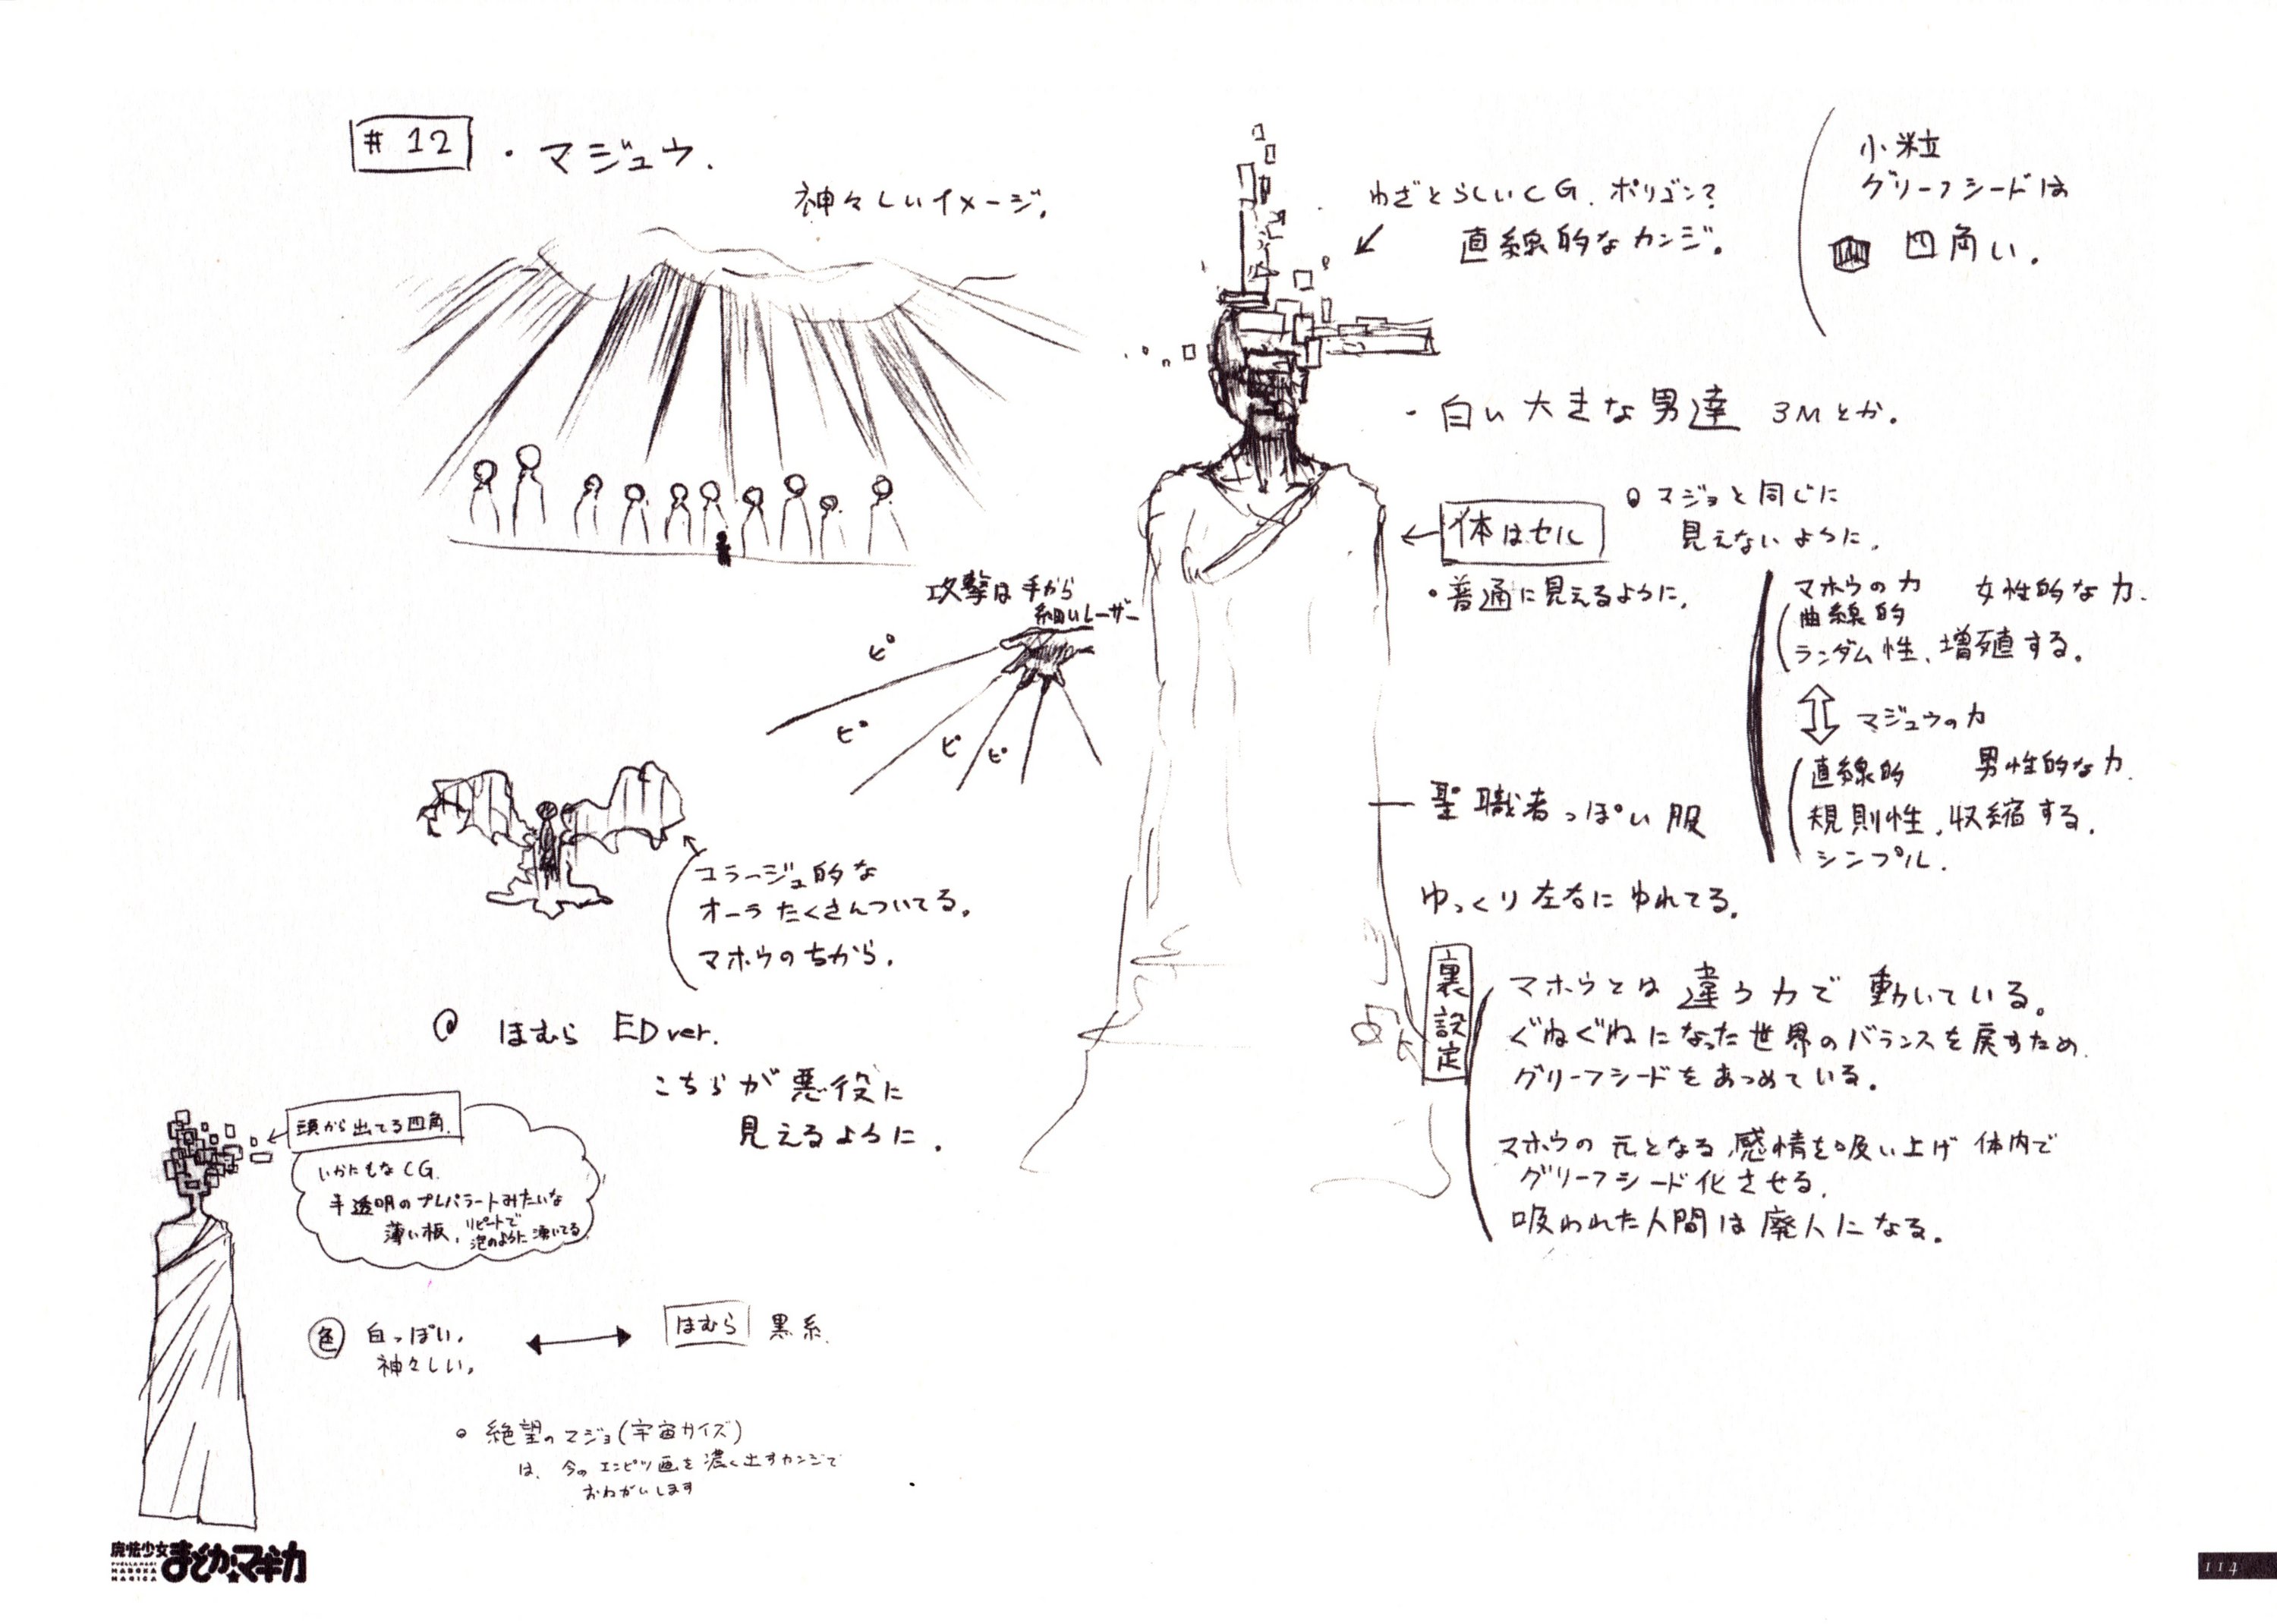 #12 ・マジュウ.
神々しいイメージ.
わざとらしいCG. ポリゴン?
直線的なカンジ。
小粒
グリーフシードは
四角い.
・白い大きな男達 3Mとか.
体はセル
マジョと同じに
見えないように.
・普通に見えるように.
攻撃は手から
細いレーザー
ピ
ピ
ピ
ピ
マホウの力 女性的な力.
曲線的
ランダム性、増殖する。
マジュウの力
直線的 男性的な力.
規則性、収縮する.
シンプル.
聖職者っぽい服
ゆっくり左右にゆれてる。
コラージュ的な
オーラたくさんついてる。
マホウのちから.
ほむら EDver.
こちらが悪役に
見えるように.
裏設定
マホウとは違う力で動いている。
ぐねぐねになった世界のバランスを戻すため.
グリーフシードをあつめている。
マホウの元となる感情を吸い上げ体内で
グリーフシード化させる.
吸われた人間は廃人になる。
頭から出てる四角.
いかにもなCG.
半透明のプレパラートみたいな
薄い板、リピートで
泡のように湧いてる
色 白っぽい。
神々しい。
ほむら 黒系.
絶望のマジョ(宇宙サイズ)
は、今のエンピツ画を濃く出すカンジで
おねがいします
魔法少女
まどか☆マギカ
PUELLA MAGI
MADOKA
MAGICA
114